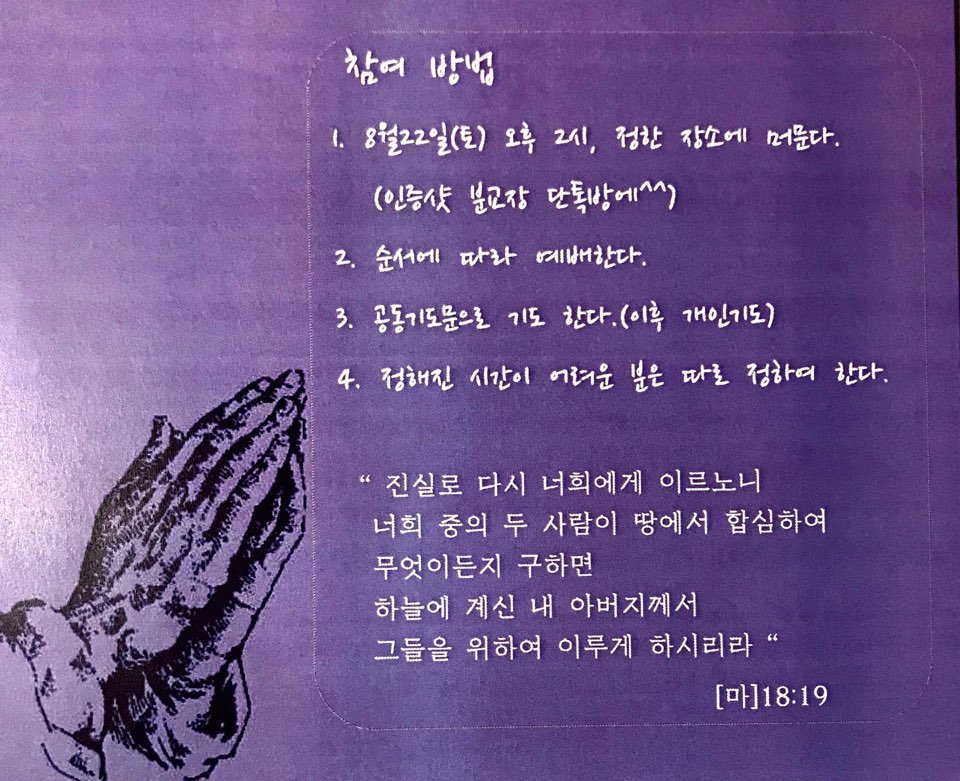 참여 방법
1. 8월22일(토) 오후 2시, 정한 장소에 머문다.
(인증샷 분교장 단톡방에^^)
2. 순서에 따라 예배한다.
3. 공동기도문으로 기도 한다.(이후 개인기도)
4. 정해진 시간이 어려운 분은 따로 정하여 한다.
“ 진실로 다시 너희에게 이르노니
너희 중의 두 사람이 땅에서 합심하여
무엇이든지 구하면
하늘에 계신 내 아버지께서
그들을 위하여 이루게 하시리라 “
[마]18:19